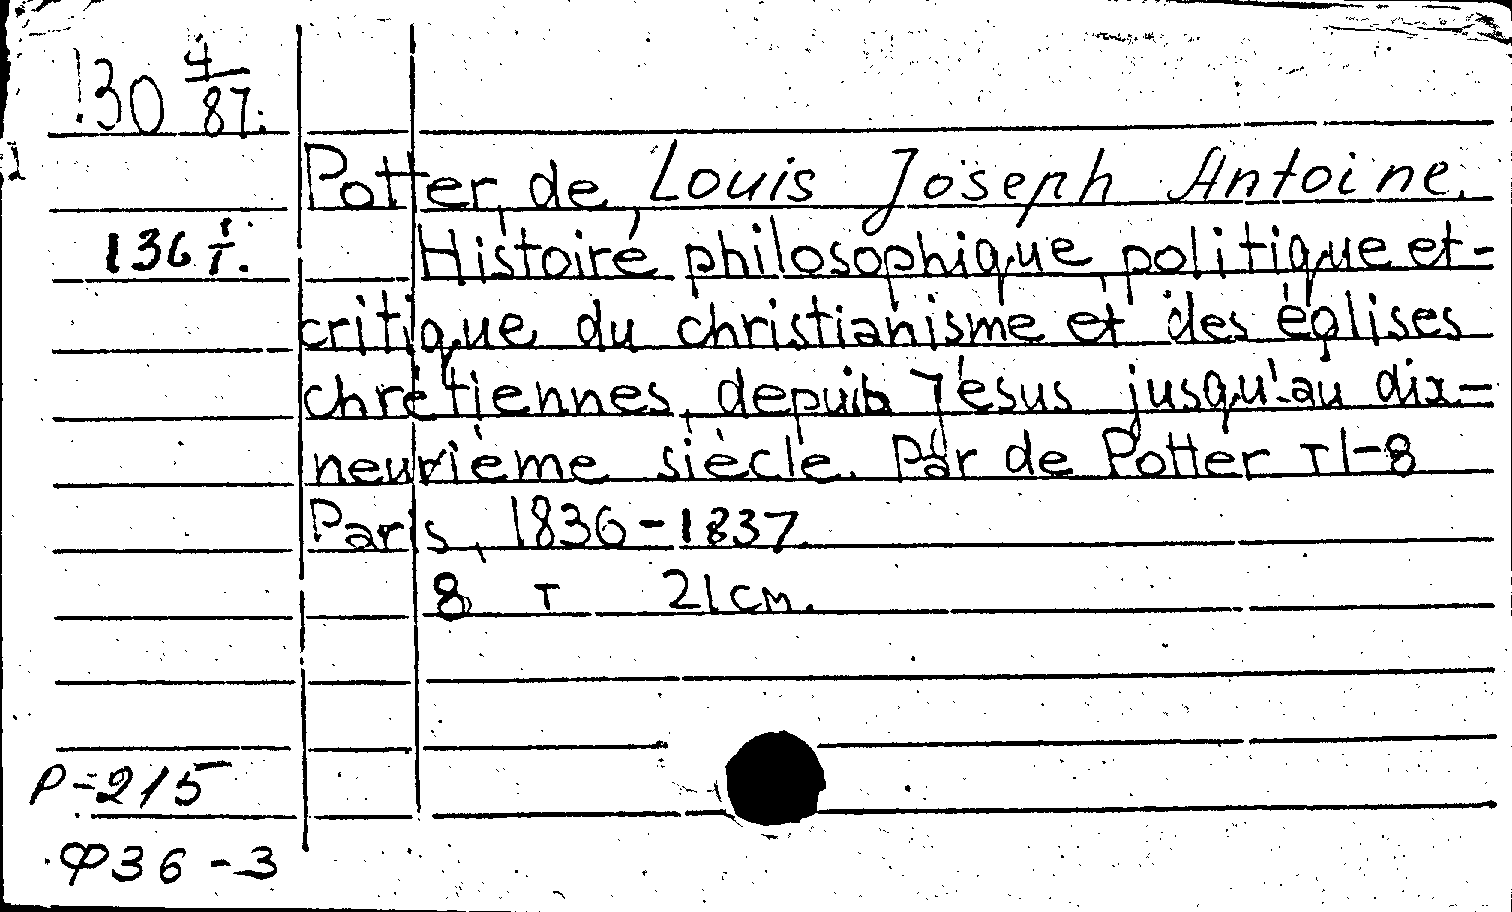 !30 4/87.
Potter, de, Louis Joseph Antoine.
136 т.
Histoire philosophique, politique et-
critique du christianisme et des églises
chrétiennes, depuis Jésus jusqu'au dix=
neuvième siècle. Par de Potter т 1-8
Paris, 1836-1837.
8 т 21см.
P=215
Ф36-3